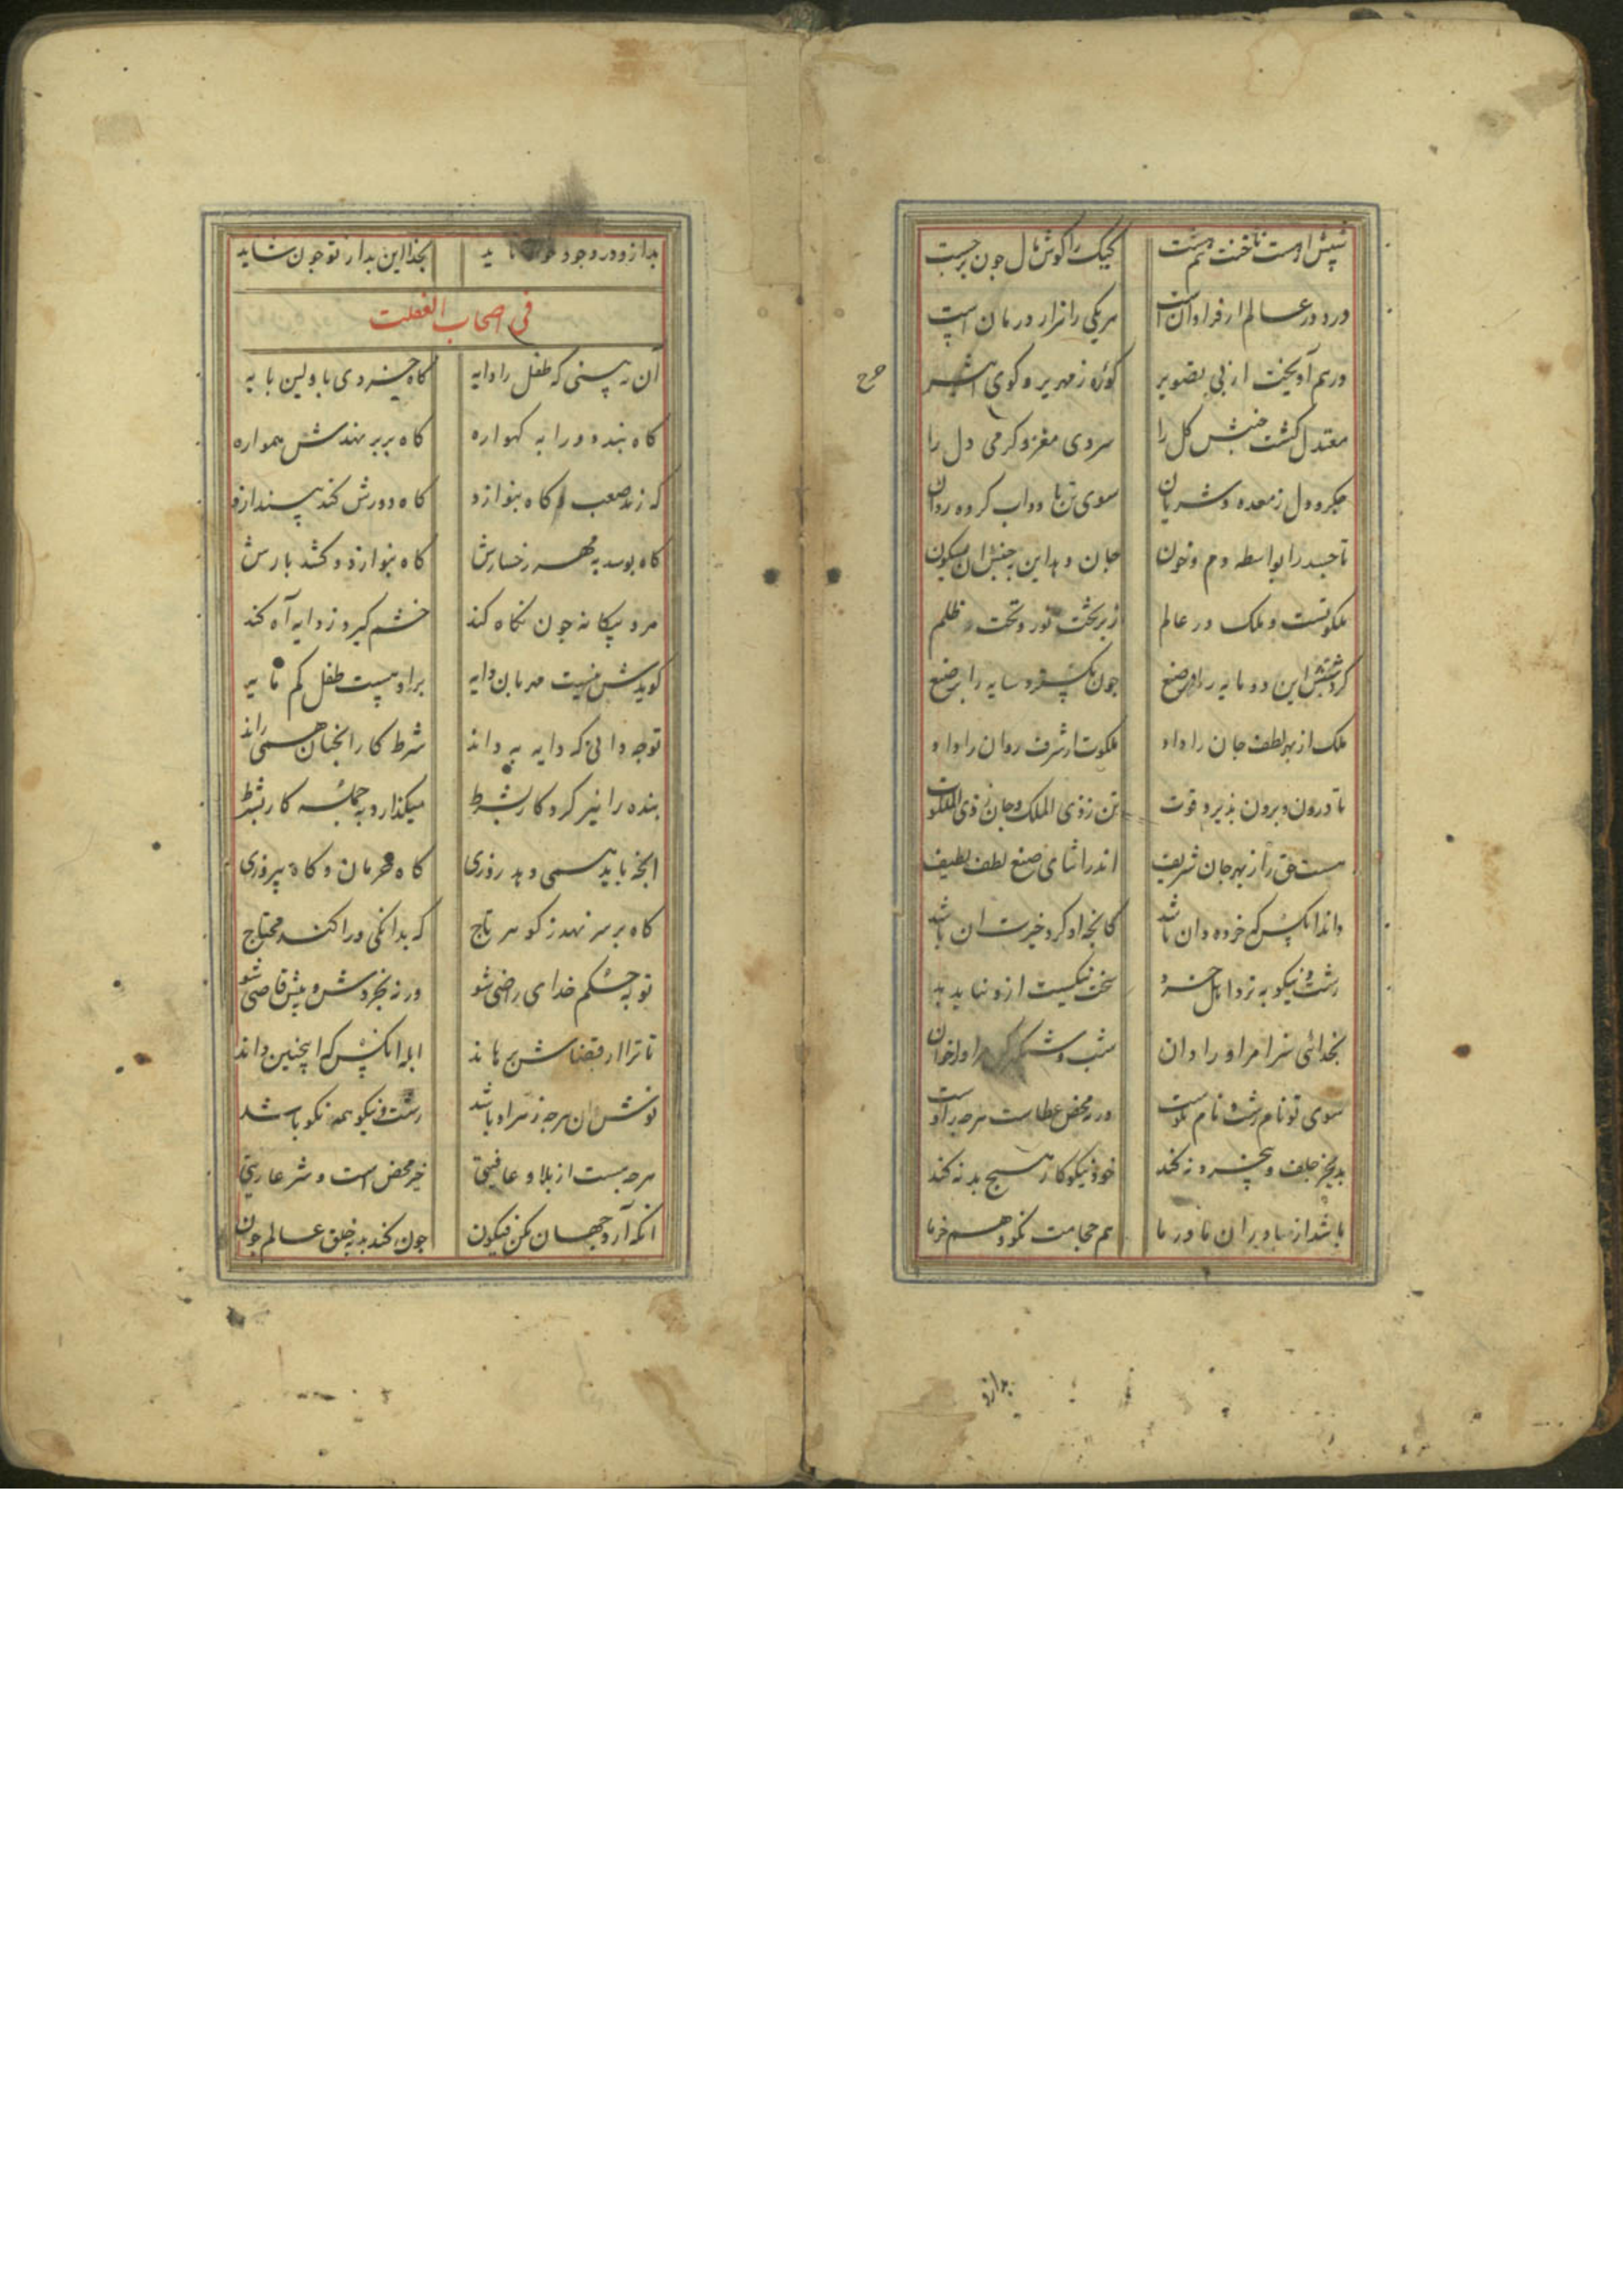 شپش ار هست ناخنت هم هست کیک را گوش مال چون برجست
درد در عالم ار فراوان است هر یکی را هزار درمان است
درهم آویخت از پی تصویر کوره زمهریر و کوی اثیر
معتدل گشت جنبش گل را سردی مغز و گرمی دل را
جگر و دل ز معده و شریان سوی تن باد و آب کرده روان
تا جسد را بواسطه دم و خون جان دهد این بجنبش آن بسکون
ملکوتست و ملک در عالم زبر تخت نور و تحت ظلم
این دو مایه را در صنع چون بگسترد سایه را بر صنع
ملک از بهر لطف جان را داد ملکوت از شرف روان را داد
تا درون و برون پذیرد قوت تن ز ذی الملک و جان ز ذی الملکوت
هست حق را ز بهر جان شریف اندر اثنای صنع لطف لطیف
داند آنکس که خرده دان باشد کانچه او کرد خیرت آن باشد
زشت و نیکو به نزد اهل خرد سخت نیکست ازو نیاید بد
بخدائی سزا مر او را دان شب و شبگیر مر او را خوان
سوی تو نام زشت و نام نکوست ورنه محض عطاست هرچه ازوست
بد بجز جلف و بیخرد نکند خود نیکوکار هیچ بد نکند
باشد از مادران نادر ما هم حجامت نکو و هم خرما
صح
بد ازو در وجود خود ناید بخدا این بد از تو چون شاید
فی اصحاب الغفلت
آن نه بینی که طفل را دایه گاه خردی باولین پایه
گاه بندد ورا به گهواره گاه بربر نهندش همواره
گه زند صعب و گاه بنوازد گاه دورش کند بیندازد
گاه بوسد به مهر رخسارش گاه بنوازد و کشد بارش
مرد بیگانه چون نگاه کند خشم گیرد ز دایه آه کند
گویدش نیست مهربان دایه بر او هست طفل کم مایه
تو چه دانی که دایه به داند شرط کار آنچنان همی راند
بنده را نیز کردگار بشرط میگذارد به جمله کار بشرط
آنچه باید همی دهد روزی گاه حرمان و گاه پیروزی
گاه بر سر نهد ز گوهر تاج گه بدانگی ورا کند محتاج
تو به حکم خدای راضی شو ورنه بخروش و پیش قاضی شو
تا ترا از قضاش برهاند ابله آنکس که اینچنین داند
نوش دان هرچه زهر او باشد زشت و نیکو همه نکو باشد
هرچه هست از بلا و عافیتی خیر محض است و شر عاریتی
آنکه آرد جهان بکن فیکون چون کند بد به خلق عالم چون